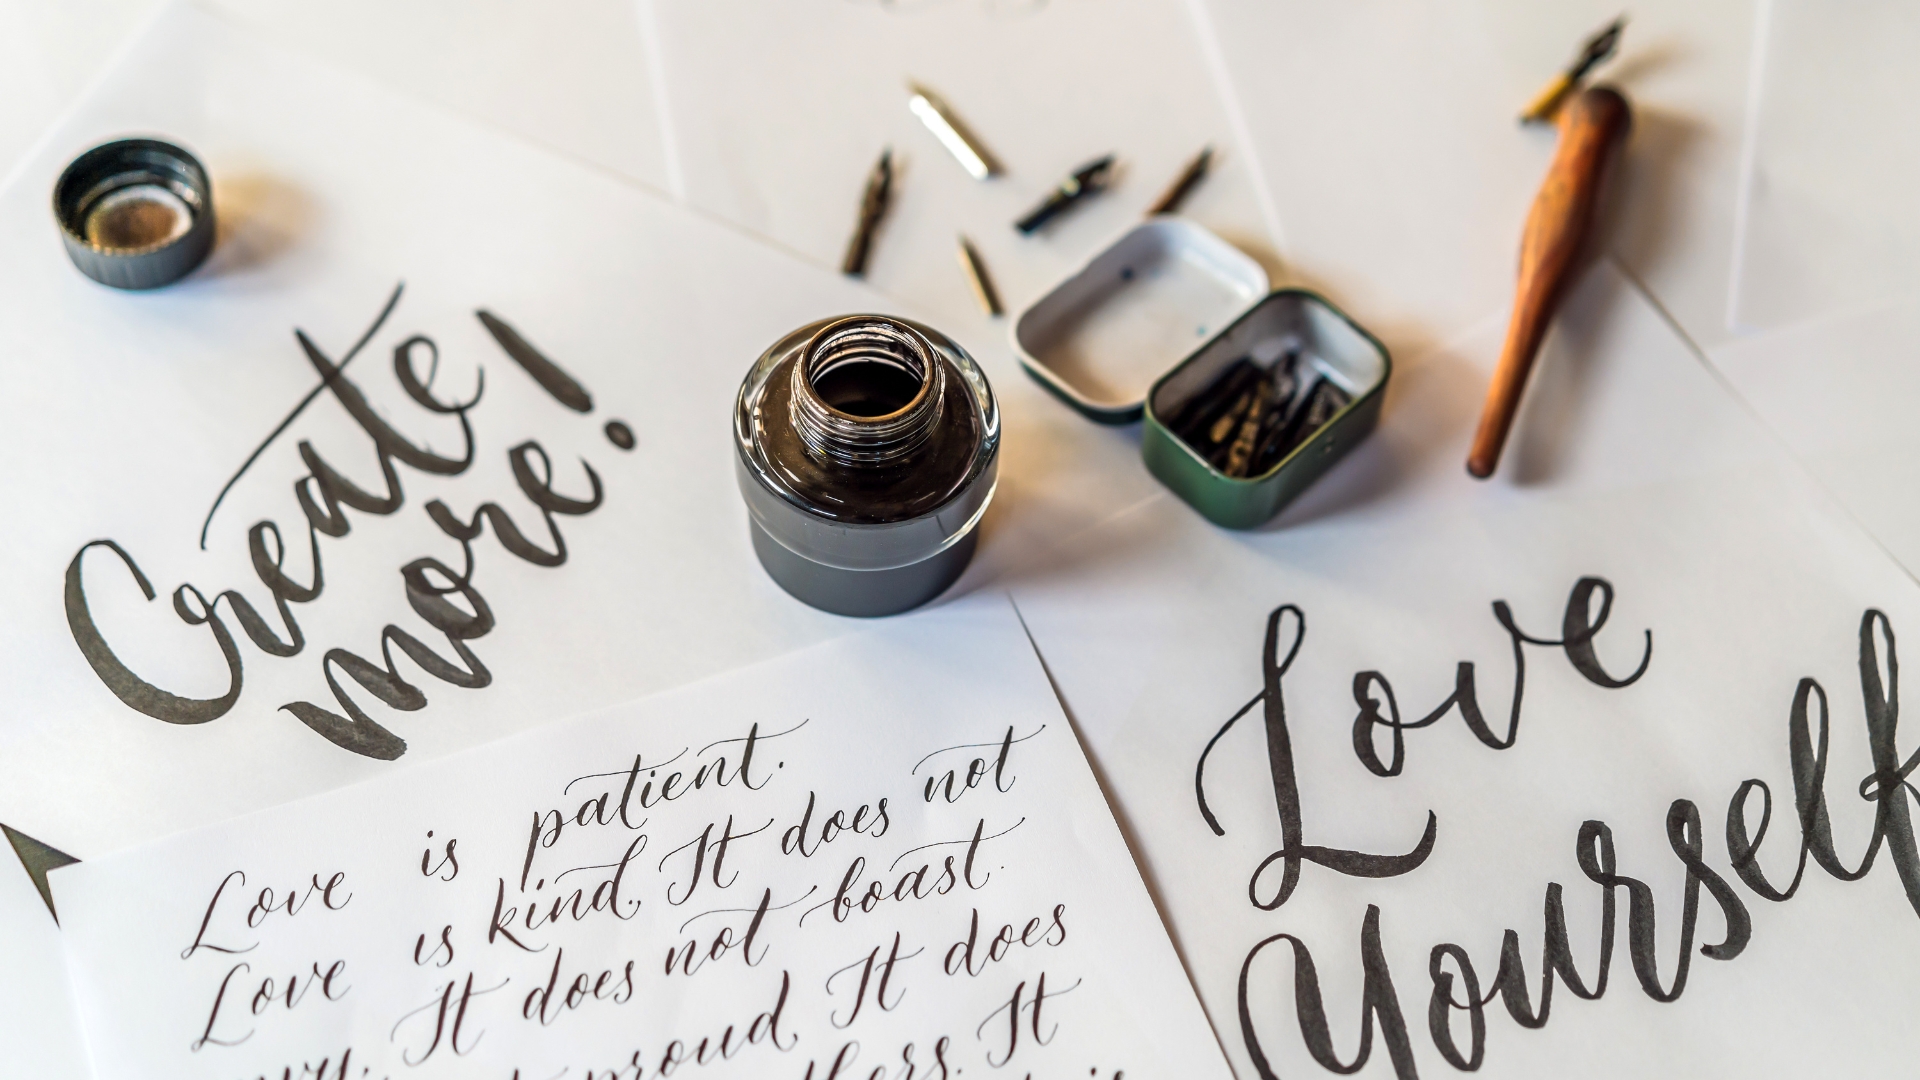 Create
more!
Love is patient.
Love is kind. It does not
envy. It does not boast.
proud. It does
It
Love
Yourself